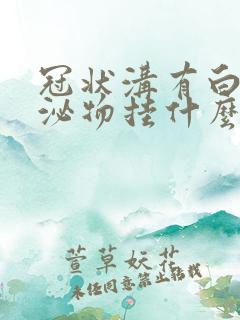 冠状溝有白
泌物挂什麽
萱草妖花
未经同意禁止转载